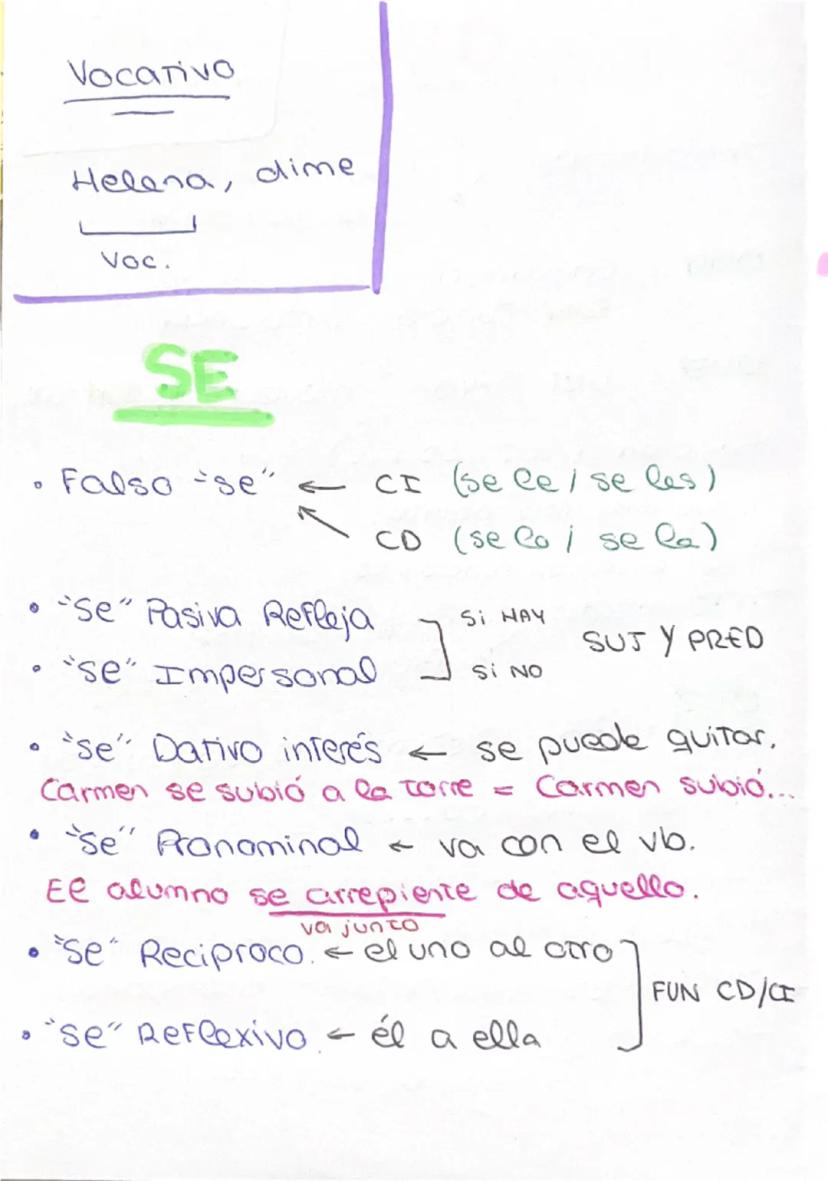 Vocativo
Helena, dime
voc.
SE
• Falso "se" ← CI (se le / se les)
CD (se lo / se la)
• "Se" Pasiva Refleja Si HAY
SUJ Y PRED
• "se" Impersonal Si NO
• "se" Dativo interés ← se puede quitar.
Carmen se subió a la torre = Carmen subió...
• "Se" Pronominal ← va con el vb.
El alumno se arrepiente de aquello.
va junto
• "Se" Reciproco. ← el uno al otro
FUN CD/CI
• "se" Reflexivo ← él a ella